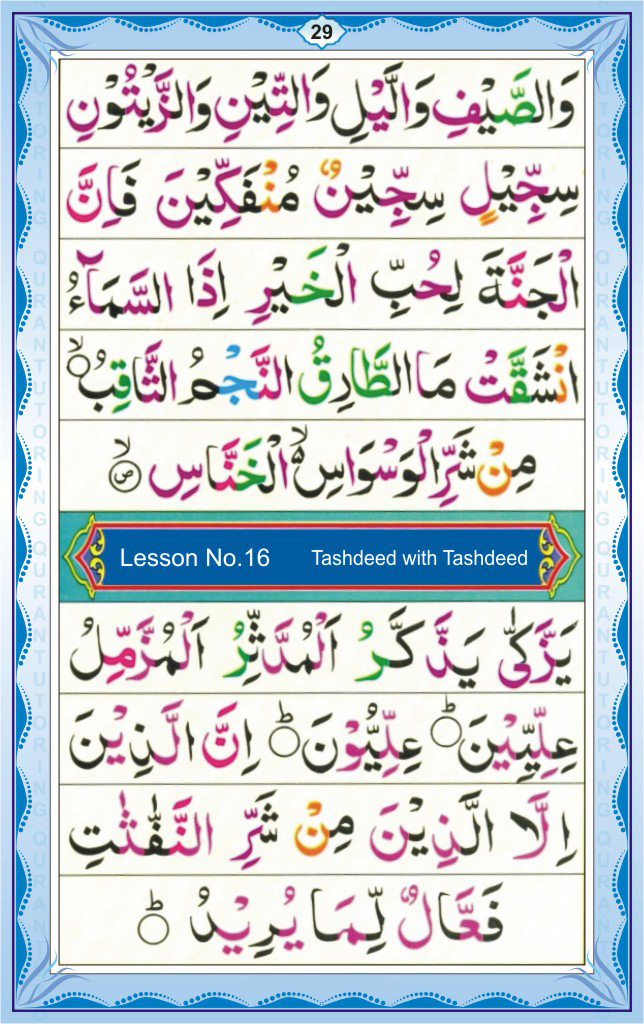 29
وَالصَّيْفِ وَالَّيْلِ وَالتِّيْنِ وَالزَّيْتُوْنِ
سِجِّيْلٍ سِجِّيْنٌ مُنْفَكِّيْنَ فَاِنَّ
الْجَنَّةَ لِحُبِّ الْخَيْرِ اِذَا السَّمَآءُ
انْشَقَّتْ مَا الطَّارِقُ النَّجْمُ الثَّاقِبُ ۙ
مِنْ شَرِّ الْوَسْوَاسِ ۙ الْخَنَّاسِ ۙ ص
Lesson No.16 Tashdeed with Tashdeed
يَزَّكّٰى يَذَّكَّرُ اَلْمُدَّثِّرُ اَلْمُزَّمِّلُ
عِلِّيِّيْنَ ؕ عِلِّيُّوْنَ ؕ اِنَّ الَّذِيْنَ
اِلَّا الَّذِيْنَ مِنْ شَرِّ النَّفّٰثٰتِ
فَعَّالٌ لِّمَا يُرِيْدُ ؕ
QURAN TUTORING
QURAN TUTORING